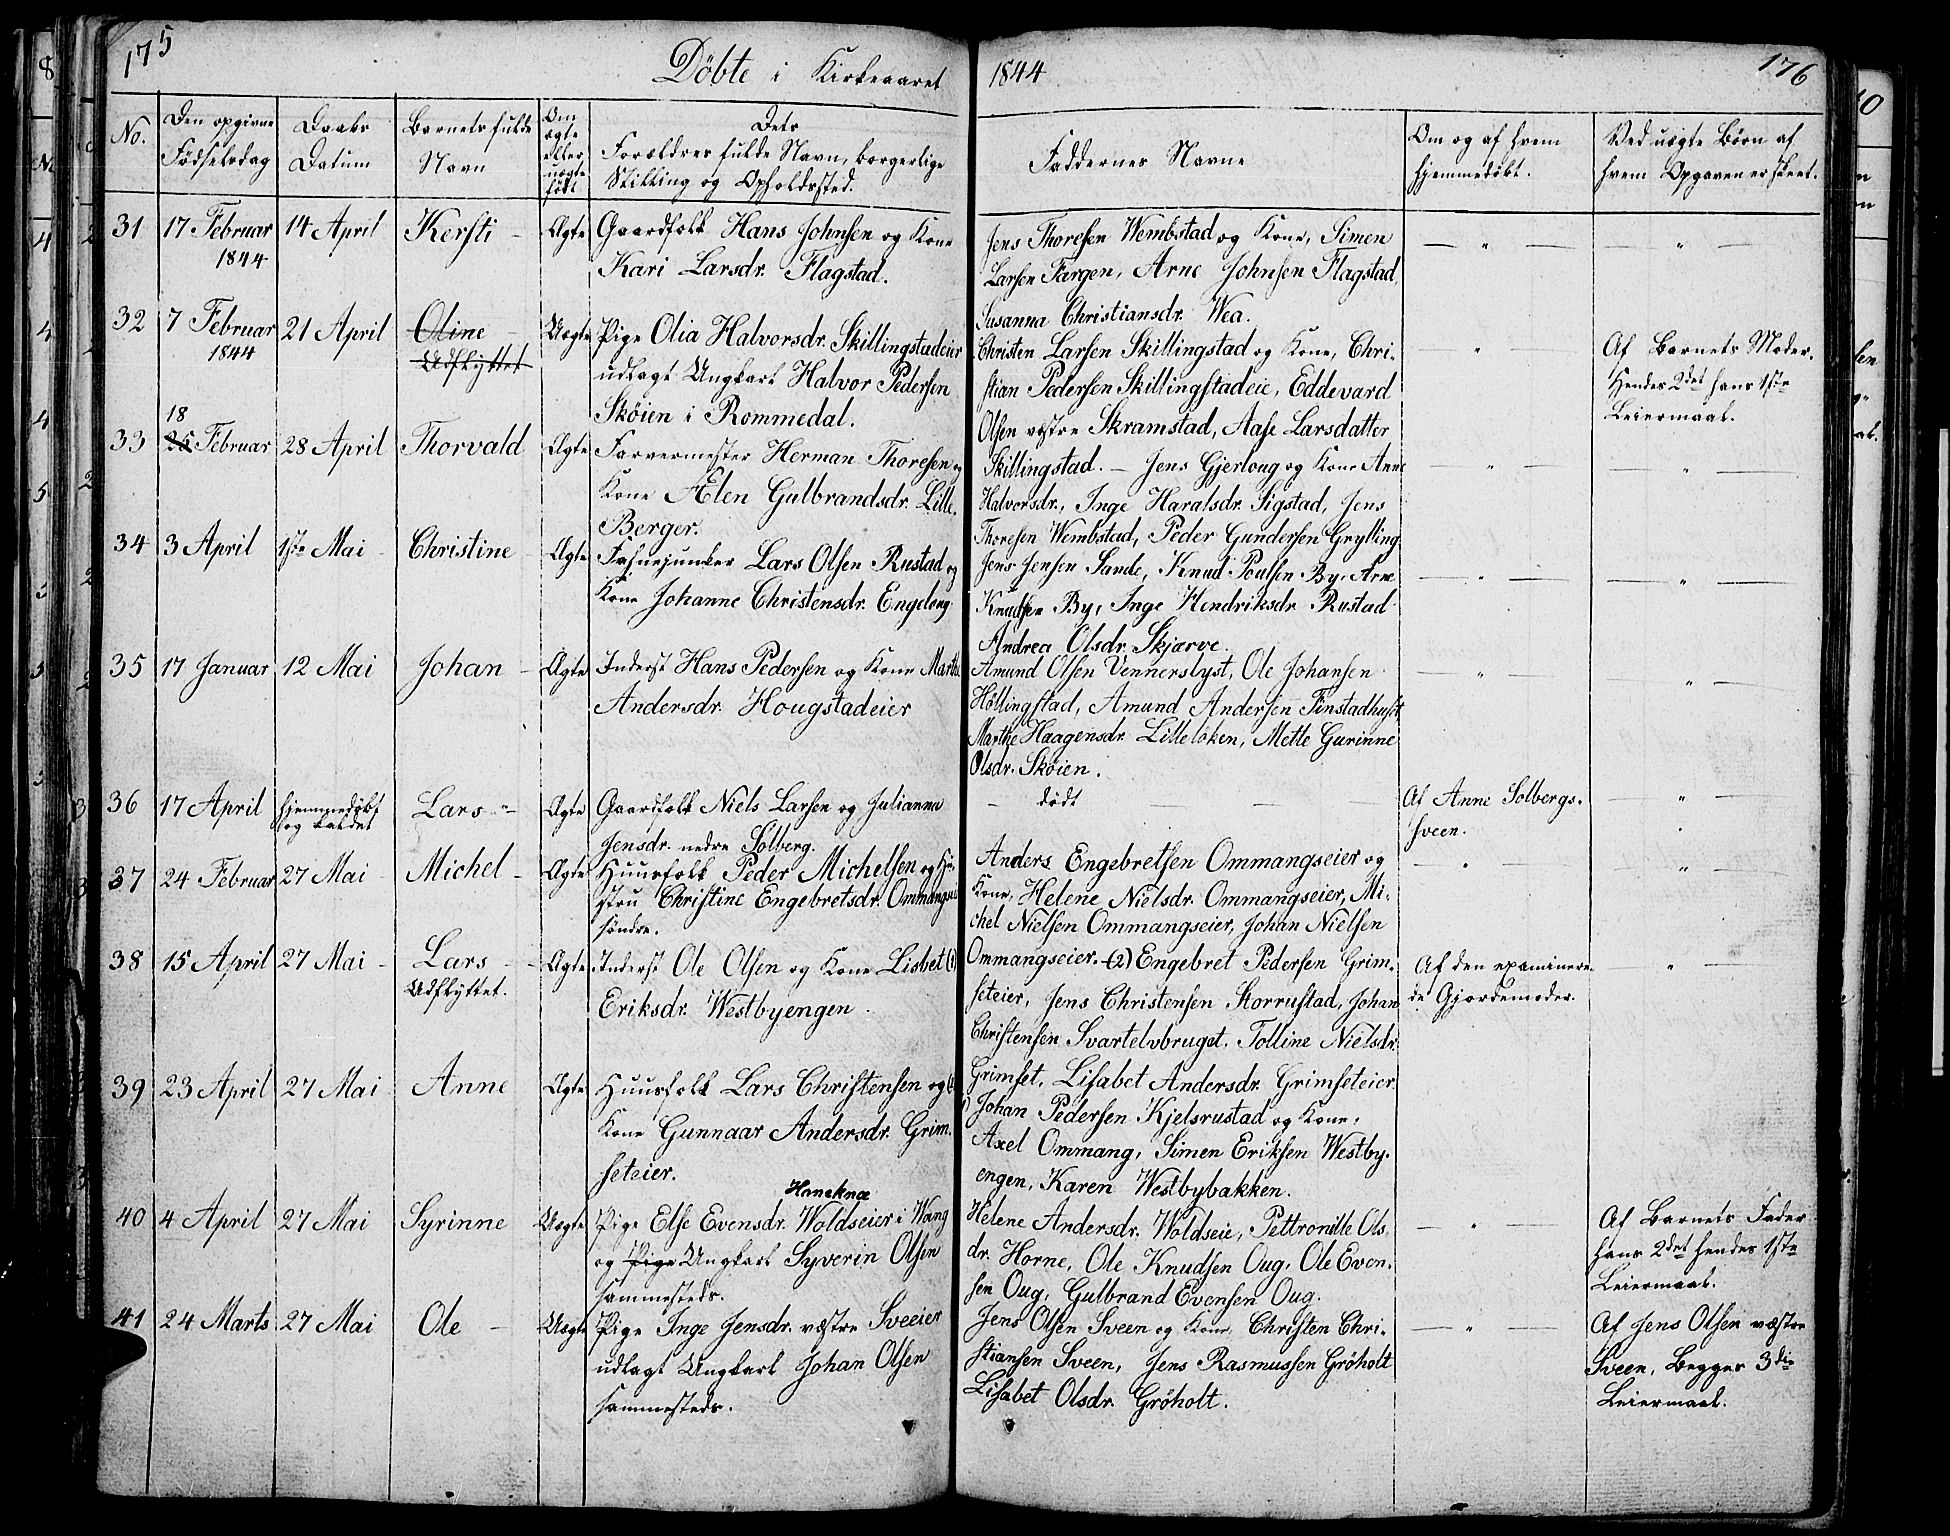 175
Döbte i Kirkeaaret
No.
Den opgivne
Födselsdag
Daabs
Datum
Barnets fulde
Navn
Om
ægte
eller
uægte
födt
Dets
Forældres fulde Navn, borgerlige
Stilling og Opholdssted.
31 17 Februar 14 April Kersti - Ægte Gaardfolk Hans Johnsen og Kone
1844 Kari Larsdr. Flagstad.
32 7 Februar 21 April Oline Uægte Pige Olia Halvorsdr. Skillingstadeier
1844 Udflyttet udlagt Ungkarl Halvor Pedersen
Skøien i Rommedal.
18
33 25 Februar 28 April Thorvald Ægte Farvermester Herman Thoresen og
Kone Ælen Gulbrandsdr. Lille
Berger.
34 3 April 1ste Mai - Christine - Ægte Fahnejunker Lars Olsen Rustad og
Kone Johanne Christensdr. Engelong
35 17 Januar 12 Mai Johan - Ægte Inderst Hans Pedersen og Kone Marthe
Andersdr. Hougstadeier
36 17 April hjemmedøbt Lars - Ægte Gaardfolk Niels Larsen og Julianna
og
Jensdr. nedre Solberg.
37 24 Februar 27 Mai - Michel - Ægte Huusfolk Peder Michelsen og Hu-
stru Christine Engebretsdr. Ommangseie
søndre.
38 15 April 27 Mai - Lars - Ægte Inderst Ole Olsen og Kone Lisbet (1)
Udflyttet. Eriksdr. Westbyengen.
39 23 April 27 Mai Anne Ægte Huusfolk Lars Christensen og (2)
Kone Gunnaar Andersdr. Grim-
seteier.
Haneknæ
40 4 April 27 Mai Syrinne Uægte Pige Else Evensdr. Woldseier i Wang
og Pige Ungkarl Syverin Olsen
sammesteds.
41 24 Marts 27 Mai Ole - Uægte Pige Inge Jensdr. vestre Sveeier
udlagt Ungkarl Johan Olsen
sammesteds.
1844
176
Faddernes Navne
Om og af hvem
hjemmedøbt.
Ved uægte Børn af
hvem Opgaven er skeet.
Jens Thoresen Wembstad og Kone, Simen — " — — " —
Larsen Fargen, Arne Johnsen Flagstad,
Susanna Christiansdr. Wea.
Christen Larsen Skillingstad og Kone, Chri- " Af Barnets Moder.
stian Pedersen Skillingstadeie, Eddevard Hendes 2det hans 1ste
Olsen vestre Skramstad, Aase Larsdatter Leiermaal.
Skillingstad. — Jens Gjerloug og Kone Anne — " — "
Halvorsdr., Inge Haralsdr. Sigstad, Jens
Thoresen Wembstad, Peder Gundersen Grylling
Jens Jensen Sande, Knud Poulsen By, Arne — " — — " —
Knudsen By, Inge Hendriksdr. Rustad
Andrea Olsdr. Skjærve.
Amund Olsen Vennerslyst, Ole Johansen — " — — " —
Höllingstad, Amund Andersen Finstadhuset
Marthe Haagensdr. Lilleløken, Mette Gurinne
Olsdr. Skøien.
- dødt — Af Anne Solbergs- — " —
sveen.
Anders Engebretsen Ommangseier og — " — — " —
Kone, Helene Nielsdr. Ommangseier, Mi-
chel Nielsen Ommangseier, Johan Nielsen
Ommangseier. (2) Engebret Pedersen Grim- Af den examinere- — " —
seteier, Jens Christensen Storrustad, Johan de Gjordemoder.
Christensen Svartelvbruget, Tolline Nielsdr.
Grimset, Lisabet Andersdr. Grimseteier
1) Johan Pedersen Kjelsrustad og Kone,
Axel Ommang, Simen Eriksen Westby-
engen, Karen Westbybakken.
Helene Andersdr. Woldseie, Pettronille Ols- — " — Af Barnets Fader
dr. Horne, Ole Knudsen Oug, Ole Even- hans 2det hendes 1ste
sen Oug, Gulbrand Evensen Oug. Leiermaal.
Jens Olsen Sveen og Kone, Christen Chri- — " — Af Jens Olsen vestre
stiansen Sveen, Jens Rasmussen Gröholt Sveen, Begges 3die
Lisabet Olsdr. Gröholt. Leiermaal.